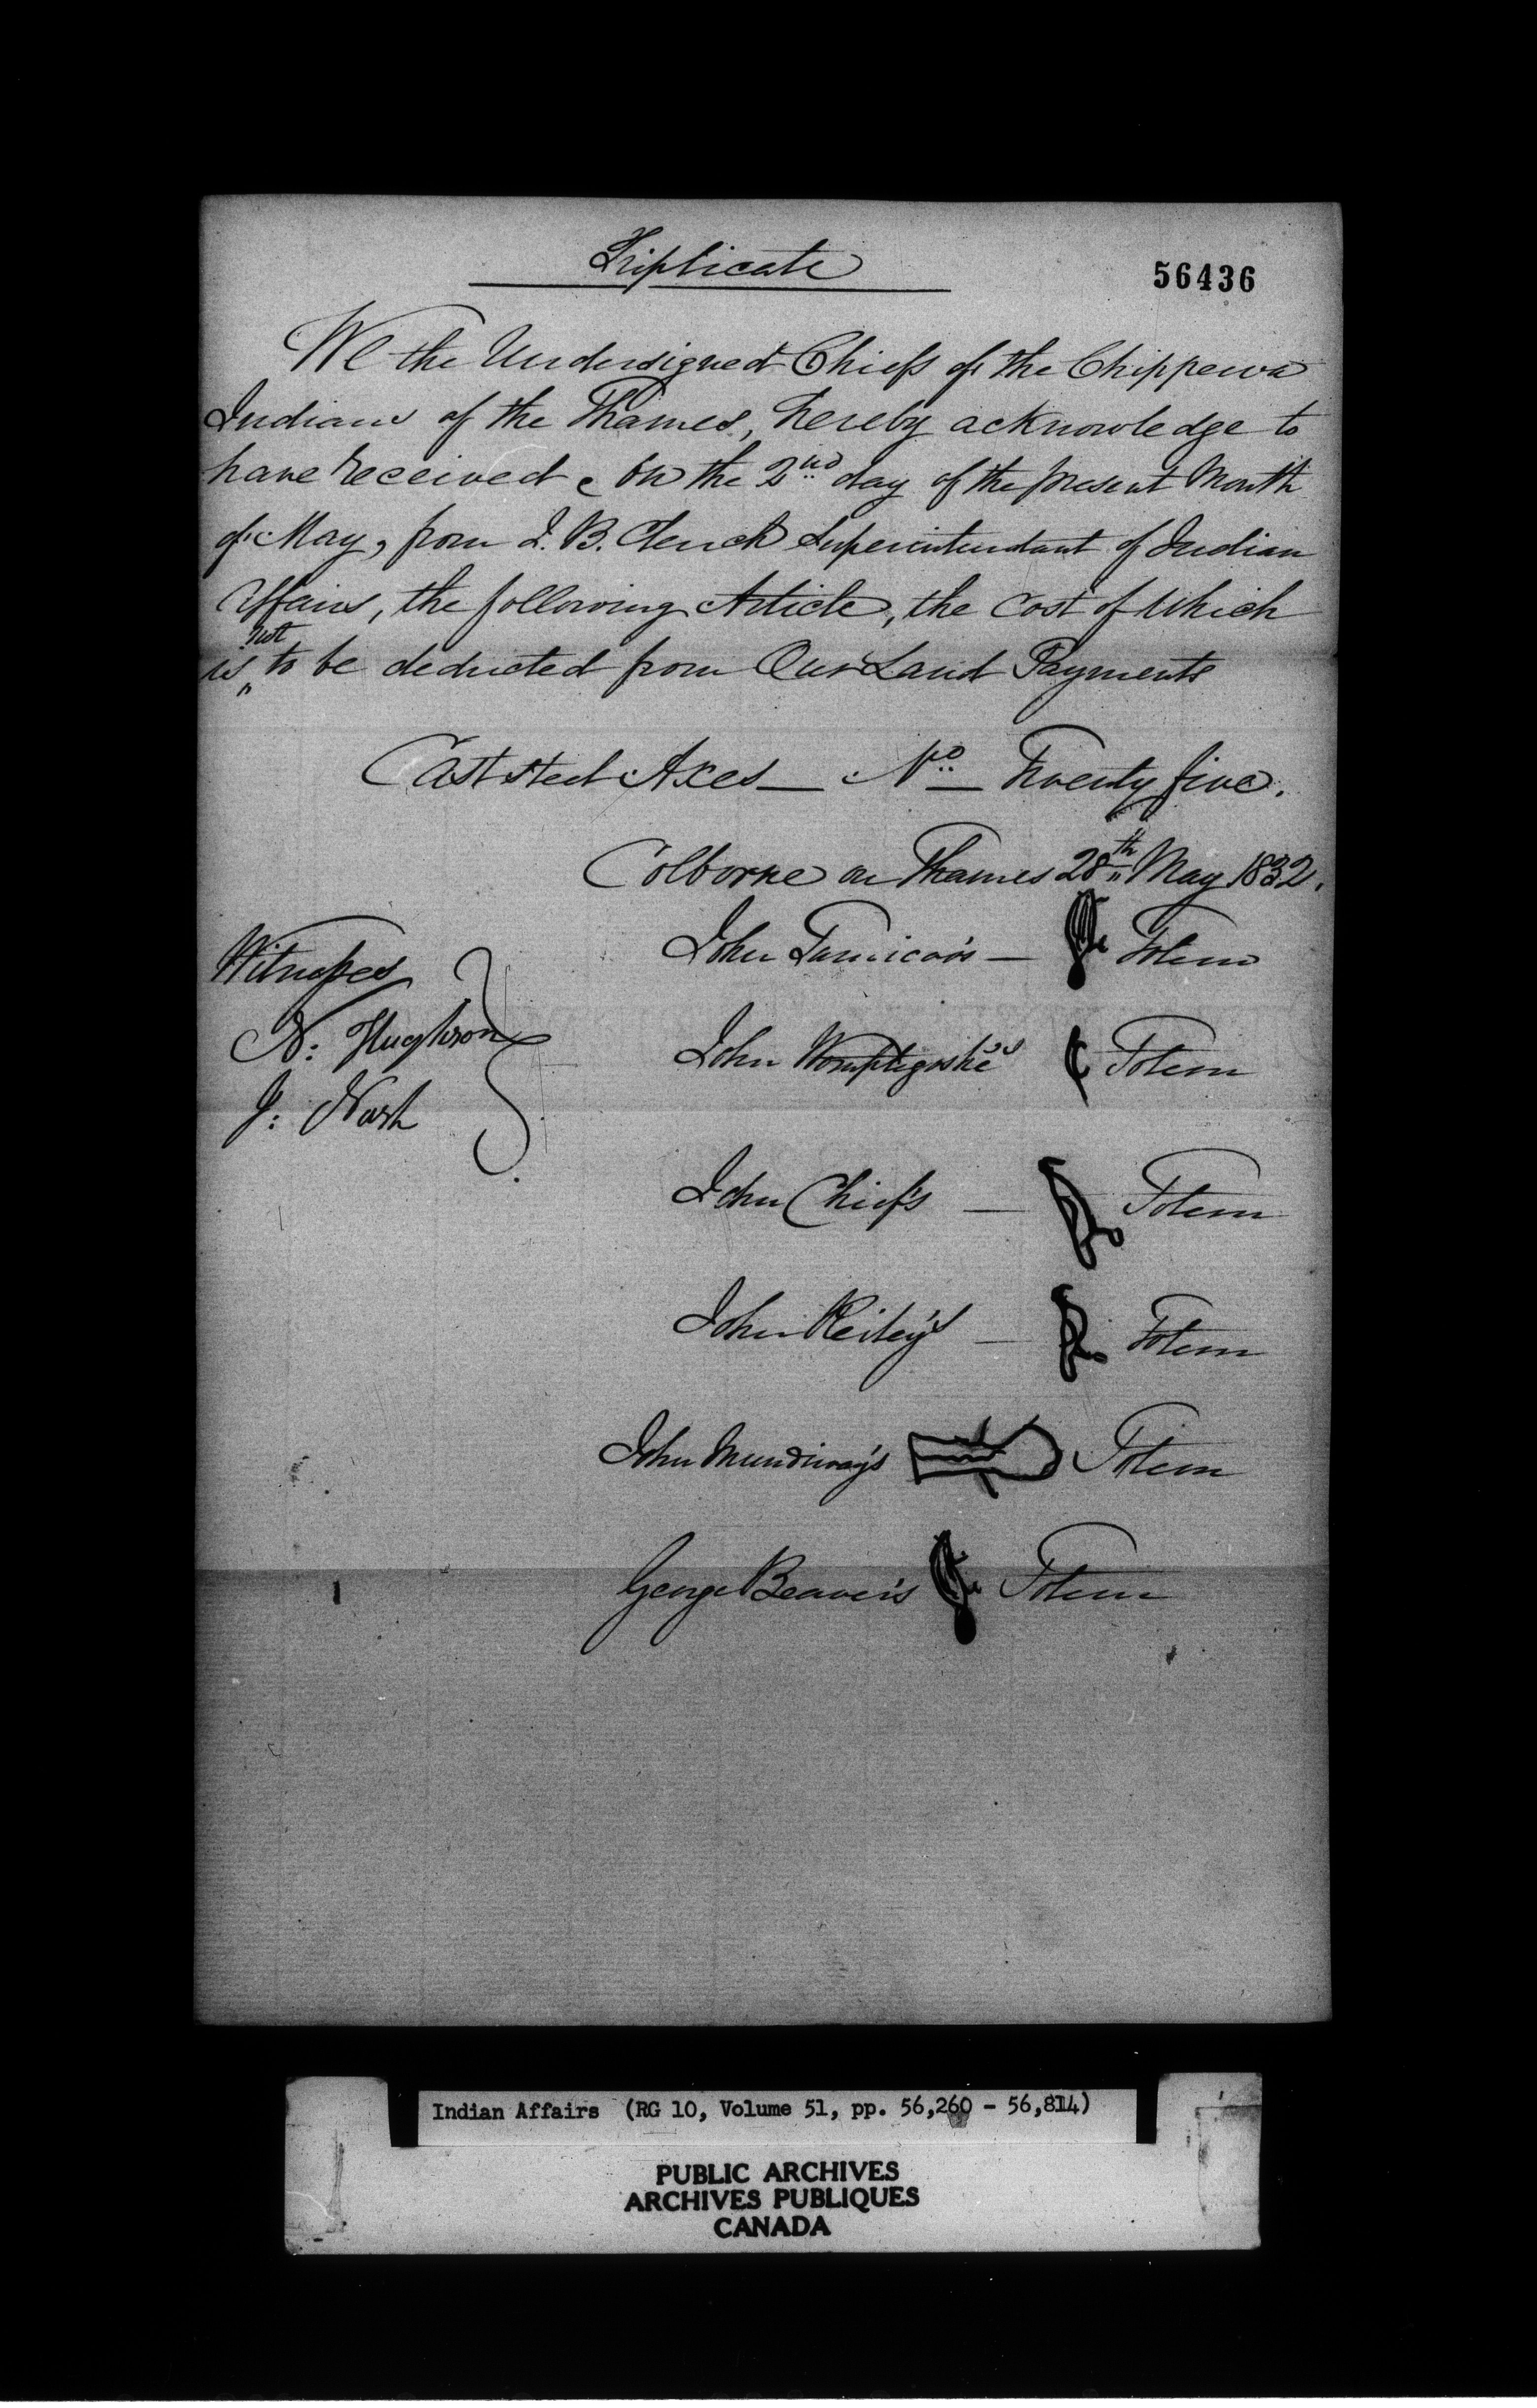 Triplicate
56436
We the Undersigned Chiefs of the Chippewa
Indians of the Thames, hereby acknowledge to
have received on the 2nd day of the present Month
of May, from J. B. Clench Superintendant of Indian
Affairs, the following Article, the Cost of Which
is not to be deducted from Our Land Payments
Cast steel Axes — No — Twenty five.
Colborne on Thames 28th May 1832.
Witnesses
N: Hughson
J: Nash
John Tumico's — Totem
John Totem
John Chief's — Totem
John Reiley's — Totem
John Mundiway's Totem
George Beaver's Totem
Indian Affairs (RG 10, Volume 51, pp. 56,260 - 56,814)
PUBLIC ARCHIVES
ARCHIVES PUBLIQUES
CANADA